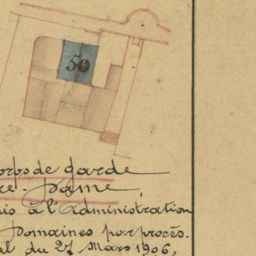 50
orps de garde
re-Dame,
is à l'Administration
Domaines par procès-
al du 27 Mars 1906,